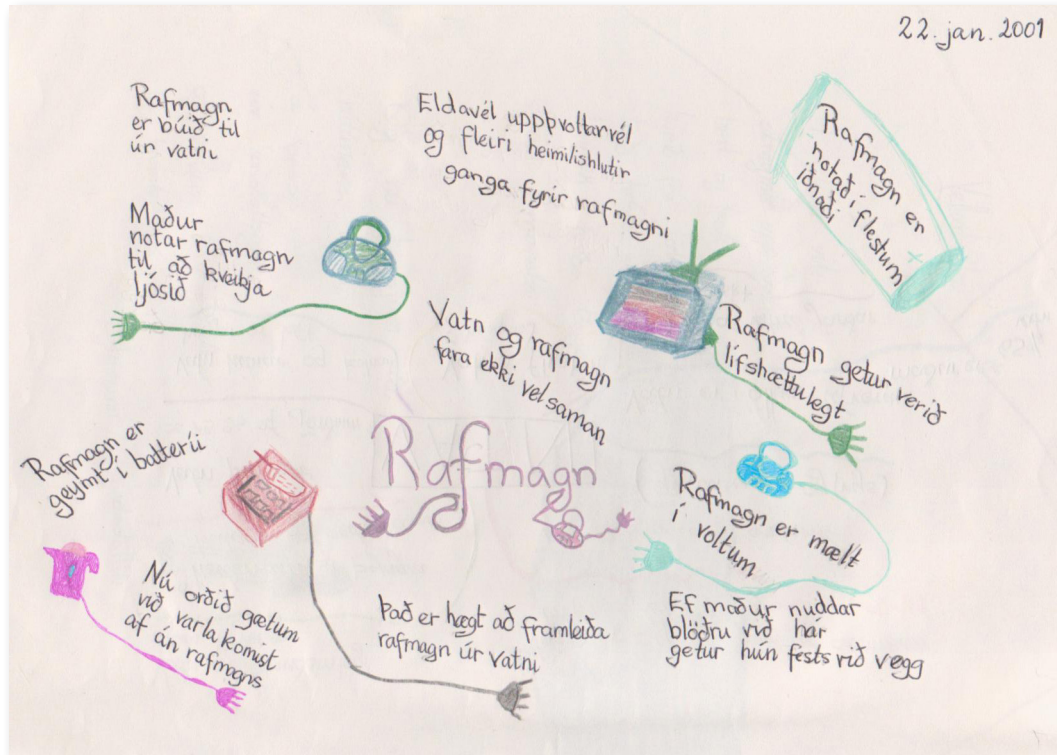 22. jan. 2001
Rafmagn
er búið til
úr vatni
Eldavél uppþvottarvél
og fleiri heimilishlutir
ganga fyrir rafmagni
Rafmagn er
notað í flestum
iðnaði
+
Maður
notar rafmagn
til að kveikja
ljósið
Vatn og rafmagn
fara ekki vel saman
Rafmagn getur verið
lífshættulegt
Rafmagn er
geymt í batteríi
Rafmagn
Rafmagn er mælt
í voltum
Nú orðið gætum
við varla komist
af án rafmagns
Það er hægt að framleiða
rafmagn úr vatni
Ef maður nuddar
blöðru við hár
getur hún fests við vegg